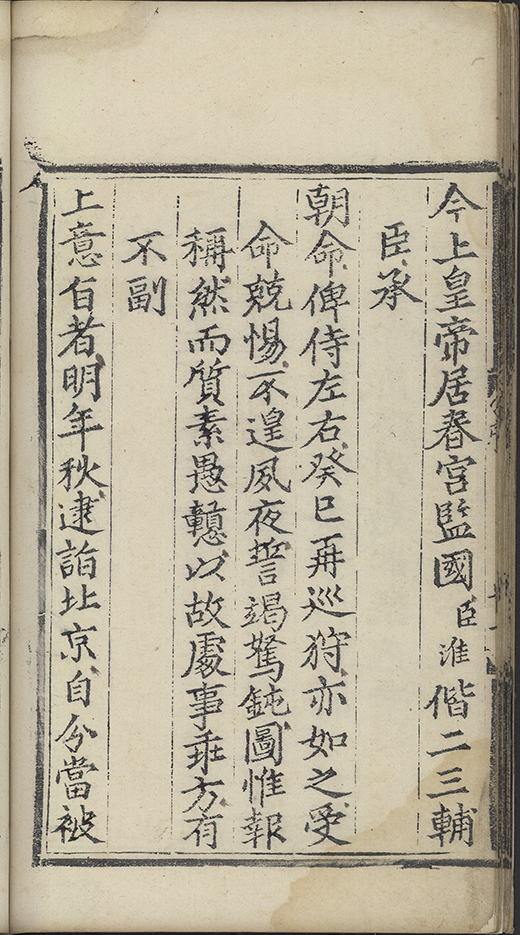 今上皇帝居春宮監國臣淮偕二三輔
臣承
朝命俾侍左右癸巳再巡狩亦如之受
命兢惕不遑夙夜誓竭駑鈍圖惟報
稱然而質素愚戇以故處事乖方有
不副
上意者明年秋逮詣北京自分當被